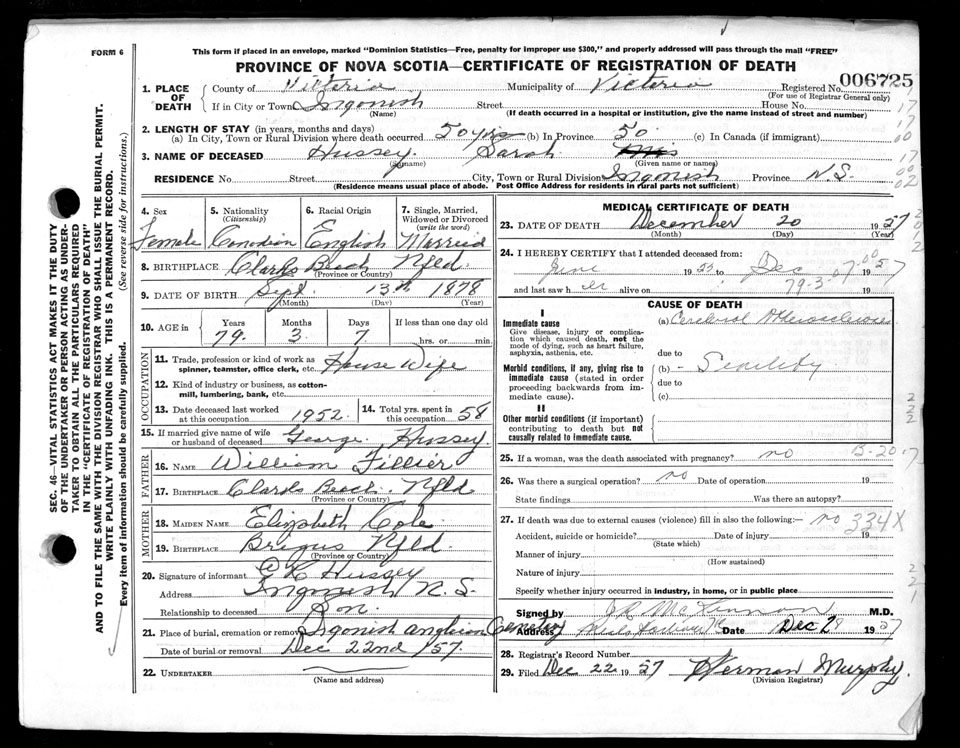 FORM 6
This form if placed in an envelope, marked "Dominion Statistics—Free, penalty for improper use $300," and properly addressed will pass through the mail "FREE"
PROVINCE OF NOVA SCOTIA—CERTIFICATE OF REGISTRATION OF DEATH
006725
1. PLACE OF DEATH
County of Victoria Municipality of Victoria Registered No.
(For use of Registrar General only)
If in City or Town Ingonish Street House No.
(Name) (If death occurred in a hospital or institution, give the name instead of street and number)
2. LENGTH OF STAY (in years, months and days)
(a) In City, Town or Rural Division where death occurred 50 yrs (b) In Province 50. (c) In Canada (if immigrant)
3. NAME OF DECEASED Hussey. Sarah Mrs
(Surname) (Given name or names)
RESIDENCE No. Street City, Town or Rural Division Ingonish Province N.S.
(Residence means usual place of abode. Post Office Address for residents in rural parts not sufficient)
4. Sex 5. Nationality 6. Racial Origin 7. Single, Married,
(Citizenship) Widowed or Divorced
(write the word)
Female Canadian English Married
8. BIRTHPLACE Clarks Beach Nfld.
(Province or Country)
9. DATE OF BIRTH Sept. 13th 1878
(Month) (Day) (Year)
10. AGE in Years Months Days If less than one day old
79. 3. 7. hrs. or min.
OCCUPATION
11. Trade, profession or kind of work as
spinner, teamster, office clerk, etc. House Wife
12. Kind of industry or business, as cotton-
mill, lumbering, bank, etc.
13. Date deceased last worked
at this occupation 1952. 14. Total yrs. spent in
this occupation 58
15. If married give name of wife
or husband of deceased George Hussey.
FATHER
16. NAME William Fillier
17. BIRTHPLACE Clarks Beach. Nfld
(Province or Country)
MOTHER
18. MAIDEN NAME Elizabeth Cole
19. BIRTHPLACE Brigus Nfld.
(Province or Country)
20. Signature of informant Hussey
Address Ingonish N.S.
Relationship to deceased Son.
21. Place of burial, cremation or removal Ingonish anglican Cemetery
Date of burial or removal Dec 22nd /57.
22. UNDERTAKER
(Name and address)
MEDICAL CERTIFICATE OF DEATH
23. DATE OF DEATH December 20 1957
(Month) (Day) (Year)
24. I HEREBY CERTIFY that I attended deceased from:
June 1953 to Dec 1957
and last saw her alive on 79-3-07.00 19
CAUSE OF DEATH
I
Immediate cause
Give disease, injury or complica-
tion which caused death, not the
mode of dying, such as heart failure,
asphyxia, asthenia, etc.
(a) Cerebral
due to
Morbid conditions, if any, giving rise to
immediate cause (stated in order
proceeding backwards from im-
mediate cause).
(b) - Senility
due to
(c)
II
Other morbid conditions (if important)
contributing to death but not
causally related to immediate cause.
25. If a woman, was the death associated with pregnancy? no B-20-17
26. Was there a surgical operation? no Date of operation 19
State findings Was there an autopsy?
27. If death was due to external causes (violence) fill in also the following:- no 334X
Accident, suicide or homicide? Date of injury 19
(State which)
Manner of injury
(How sustained)
Nature of injury
Specify whether injury occurred in industry, in home, or in public place
Signed by M.D.
Address Date Dec 28 1957
28. Registrar's Record Number
29. Filed Dec 22 1957 Herman Murphy
(Division Registrar)
SEC. 46—VITAL STATISTICS ACT MAKES IT THE DUTY
OF THE UNDERTAKER OR PERSON ACTING AS UNDER-
TAKER TO OBTAIN ALL THE PARTICULARS REQUIRED
IN THE "CERTIFICATE OF REGISTRATION OF DEATH"
AND TO FILE THE SAME WITH THE DIVISION REGISTRAR WHO SHALL ISSUE THE BURIAL PERMIT.
WRITE PLAINLY WITH UNFADING INK. THIS IS A PERMANENT RECORD.
Every item of information should be carefully supplied. (See reverse side for instructions.)